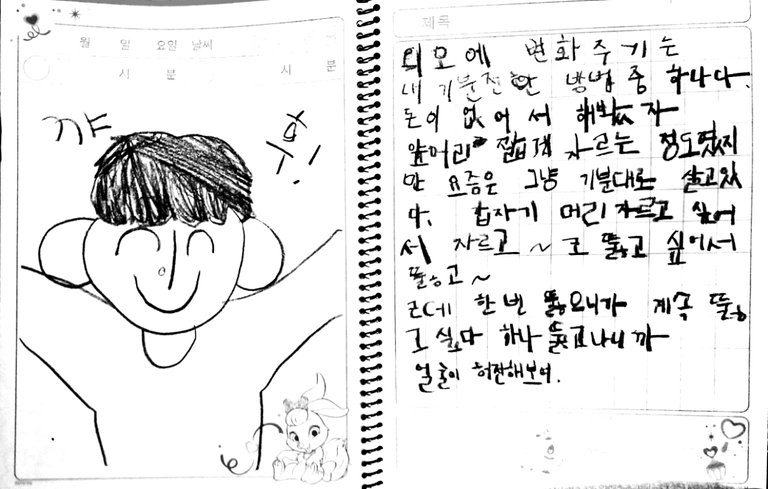 월 일 요일 날씨
시 분 시 분
꺄
훗!
제목
외모에 변화 주기는
내 기분전환 방법 중 하나다.
돈이 없어서 해봤자
앞머리 짧게 자르는 정도였지
만 요즘은 그냥 기분대로 살고있
다. 갑자기 머리 자르고 싶어
서 자르고 ~ 코 뚫고 싶어서
뚫고 ~
근데 한 번 뚫으니까 계속 뚫
고 싶다 하나 뚫고나니까
얼굴이 허전해보여.